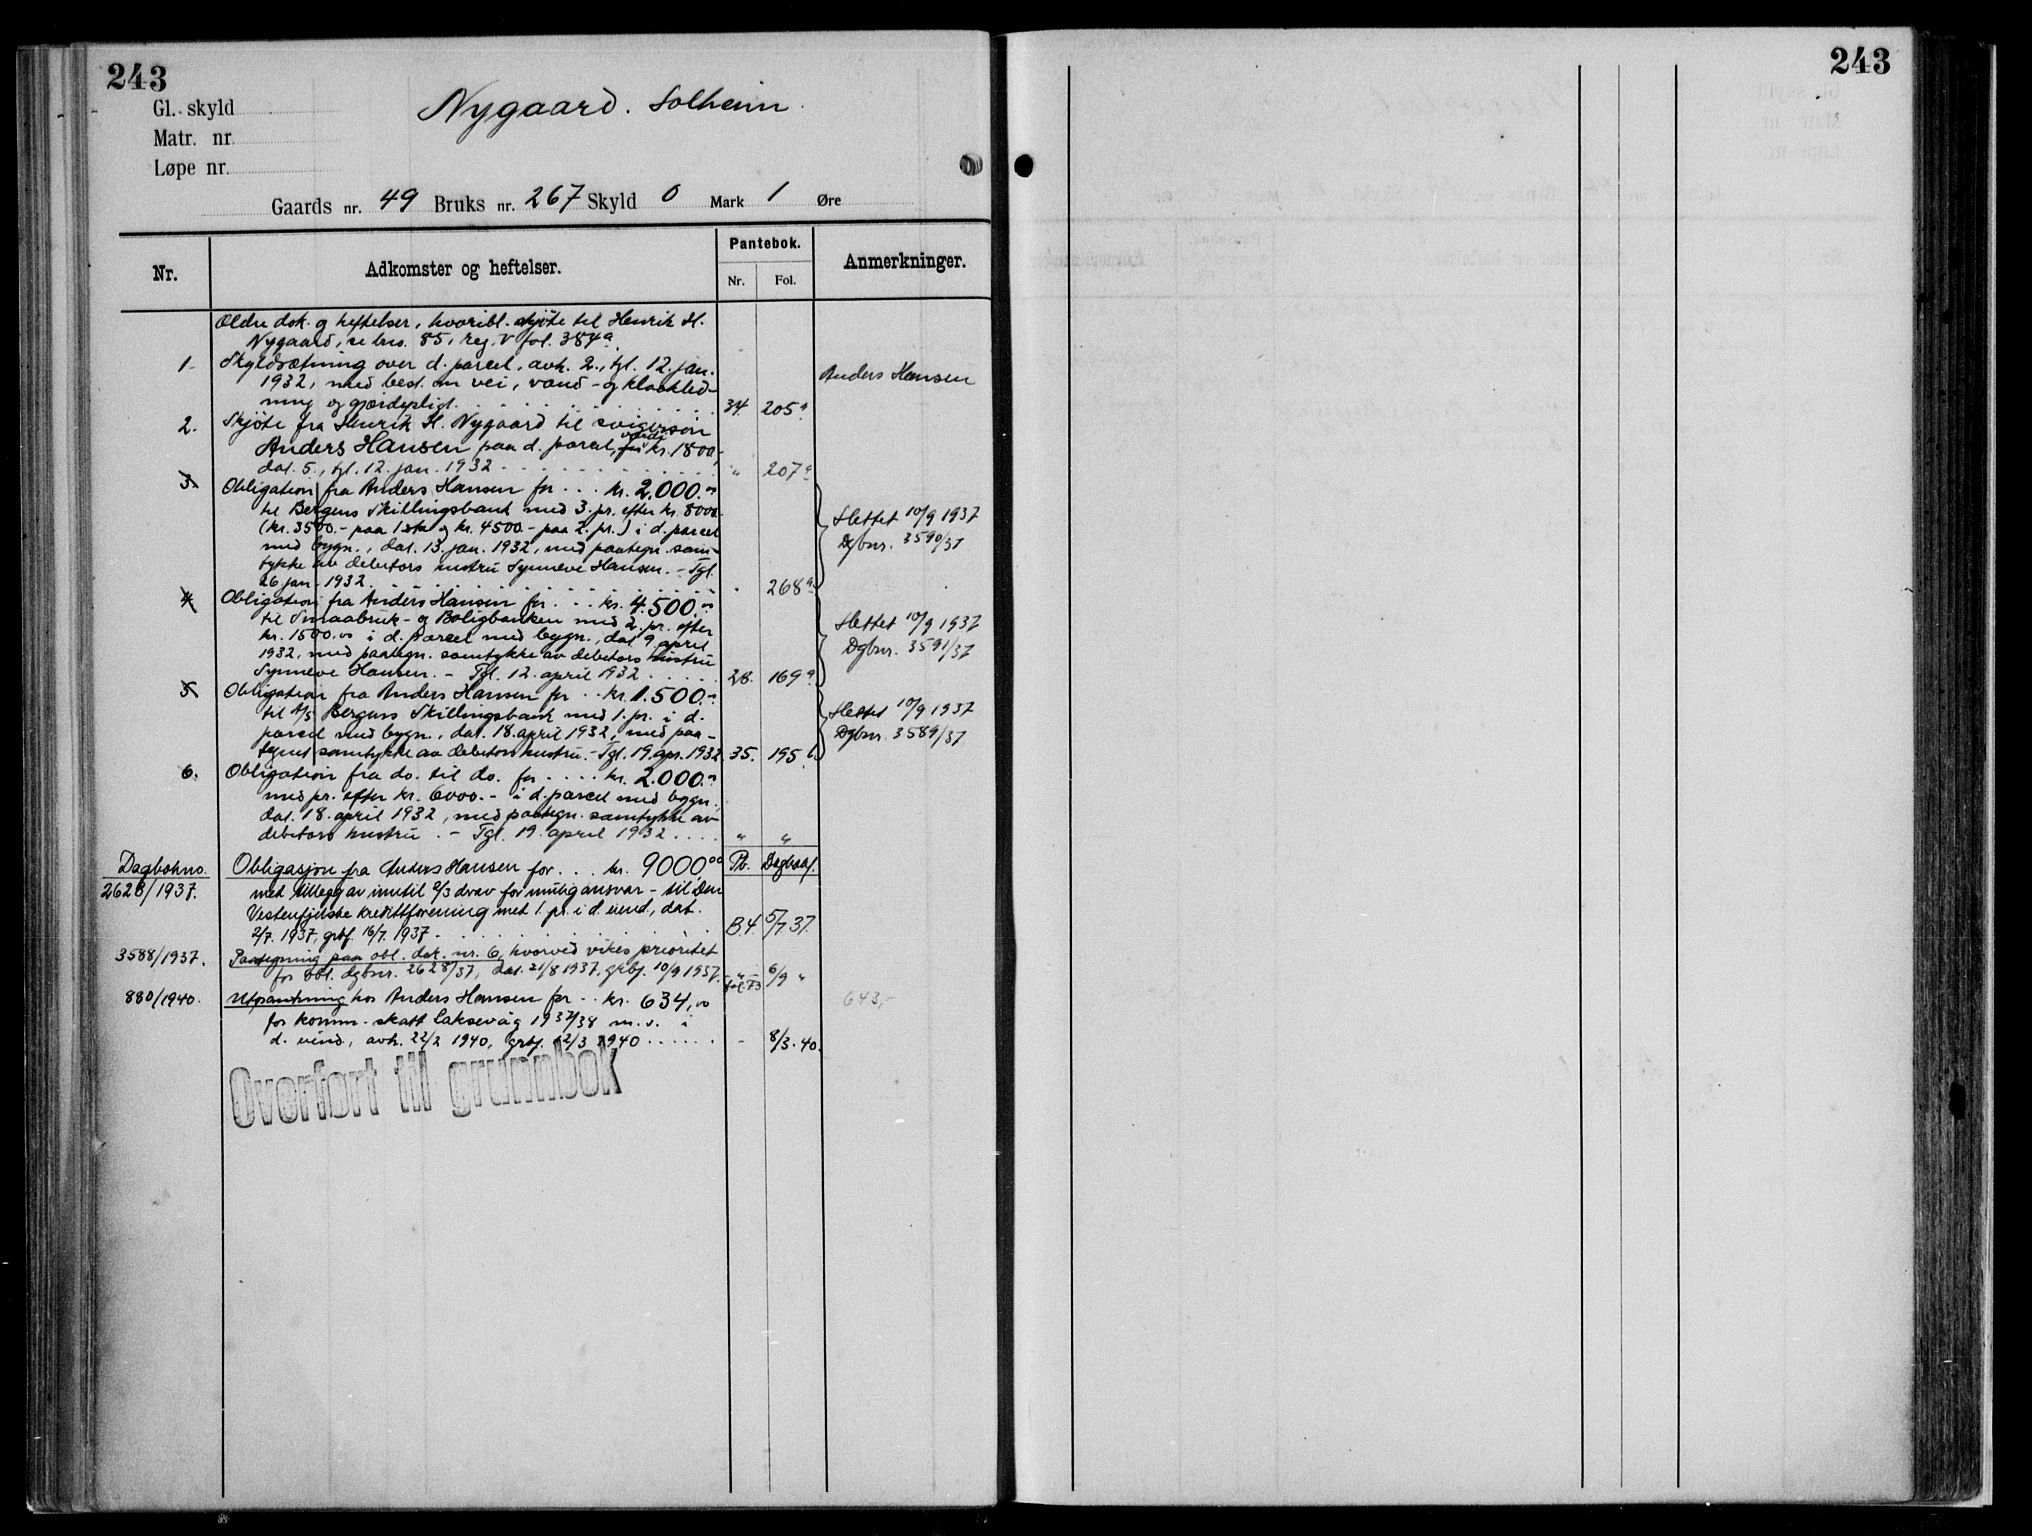 243
243
Gl. skyld
Nygaard. Solheim.
Matr. nr.
Løpe nr.
Gaards nr. 49 Bruks nr. 267 Skyld 0 Mark 1 Øre
Nr.
Adkomster og heftelser.
Pantebok.
Nr. Fol.
Anmerkninger.
Ældre dok. og heftelser, hvoribl. skjøte til Henrik H.
Nygaard, se bno. 85, reg. V fol. 384a.
1. Skyldsætning over d. parcel, avh. 2., tgl. 12. jan.
Anders Hansen
1932, med best. om vei, vand- og kloakled-
ning og gjærdepligt. 34. 205a
2. Skjøte fra Henrik H. Nygaard til svigersøn
Anders Hansen paa d. parcel, værdi kr. 1800,-
dat. 5., tgl. 12. jan. 1932 " 207a
3. Obligation fra Anders Hansen for ... kr. 2.000.00
til Bergens Skillingsbank med 3. pr. efter kr. 8000.
(kr. 3500.- paa 1ste og kr. 4500.- paa 2. pr.) i d. parcel
med bygn., dat. 13. jan. 1932, med paategn. sam-
tykke av debitors hustru Synneve Hansen. - Tgl.
26. jan. 1932 " 268a
Slettet 10/9 1937
Dgbnr. 3590/37
4. Obligation fra Anders Hansen for ... kr. 4.500.00
til Smaabruk- og Boligbanken med 2. pr. efter
kr. 1500.00 i d. parcel med bygn., dat. 9. april
1932, med paategn. samtykke av debitors hustru
Synneve Hansen. - Tgl. 12. april 1932 28. 169a
Slettet 10/9 1937
Dgbnr. 3591/37
5. Obligation fra Anders Hansen for .. kr. 1.500.00
til A/S Bergens Skillingsbank med 1. pr. i d.
parcel med bygn., dat. 18. april 1932, med paa-
tegnet samtykke av debitors hustru. - Tgl. 19. apr. 1932 35. 195b
Slettet 10/9 1937
Dgbnr. 3589/37
6. Obligation fra do. til do. for .... kr. 2.000.00
med pr. efter kr. 6000.- i d. parcel med bygn.,
dat. 18. april 1932, med paategn. samtykke av
debitors hustru. - Tgl. 19. april 1932 .... " "
Dagbokno. Obligasjon fra Anders Hansen for ... kr. 9000,00 Pb. Dagbokf.
2628/1937. met tillegg av inntil 2/3 derav for mulig ansvar - til Den
Vestenfjelske kredittforening met 1. pr. i d. eiend., dat.
2/7. 1937, grbf. 16/7. 1937 B.4. 5/7 37.
3588/1937. Paategning paa obl. dok. nr. 6, hvorved vikes prioritet
for obl. dgbnr. 2628/37, dat. 21/8 1937, grbf. 10/9 1937. " 6/9 "
fol. 73
880/1940. Utpantning hos Anders Hansen for .. kr. 634,00
643,-
for komm. skatt Laksevåg 1937/38 m. v. i
d. eiend., avh. 22/2 1940, grbf. 12/3 1940 ...... - 8/3. 40.
Overført til grunnbok